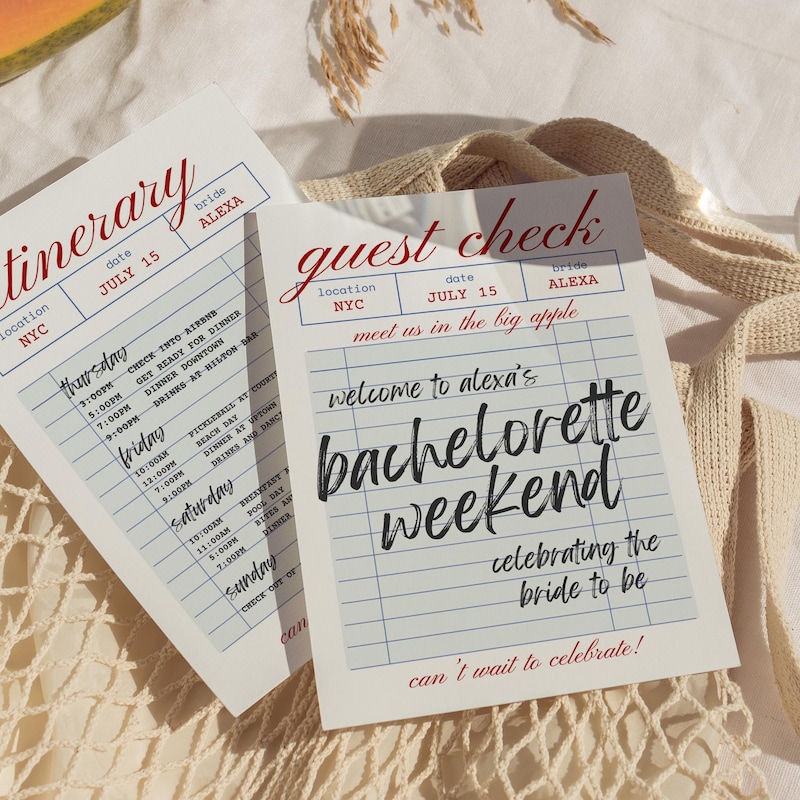 itinerary
location date bride
NYC JULY 15 ALEXA
thursday
3:00PM CHECK INTO AIRBNB
5:00PM GET READY FOR DINNER
7:00PM DINNER DOWNTOWN
9:00PM DRINKS AT HILTON BAR
friday
10:00AM PICKLEBALL AT
12:00PM BEACH DAY
7:00PM DINNER AT UPTOWN
9:00PM DRINKS AND
saturday
10:00AM BREAKFAST
11:00AM POOL DAY
5:00PM BITES
7:00PM DINNER
sunday
CHECK OUT OF
guest check
location date bride
NYC JULY 15 ALEXA
meet us in the big apple
welcome to alexa's
bachelorette
weekend
celebrating the
bride to be
can't wait to celebrate!